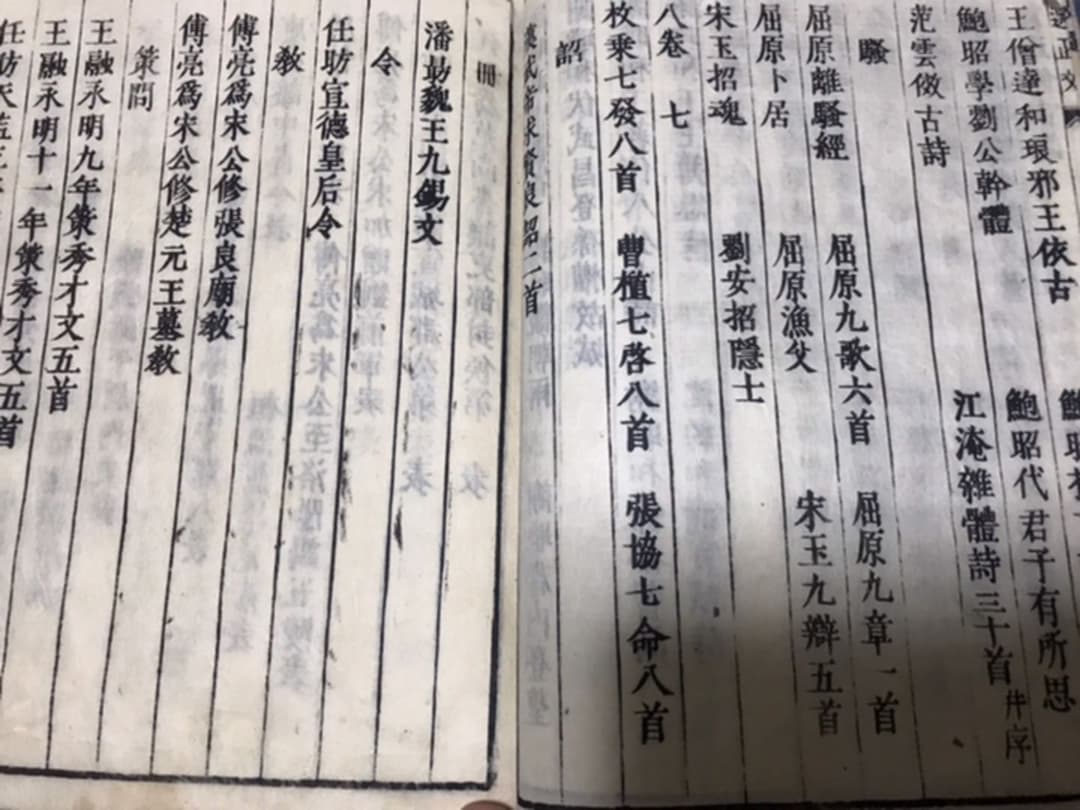 王僧達和琅邪王依古　鮑昭代君子有所思
鮑昭學劉公幹體　江淹雜體詩三十首并序
范雲傚古詩
騷
屈原離騷經　屈原九歌六首　屈原九章一首
屈原卜居　屈原漁父　宋玉九辯五首
宋玉招魂　劉安招隱士
八卷　七
枚乘七發八首　曹植七啓八首　張協七命八首
詔
漢武帝求賢良詔二首
冊
潘勗魏王九錫文
令
任昉宣德皇后令
教
傅亮為宋公修張良廟教
傅亮為宋公修楚元王墓教
策問
王融永明九年策秀才文五首
王融永明十一年策秀才文五首